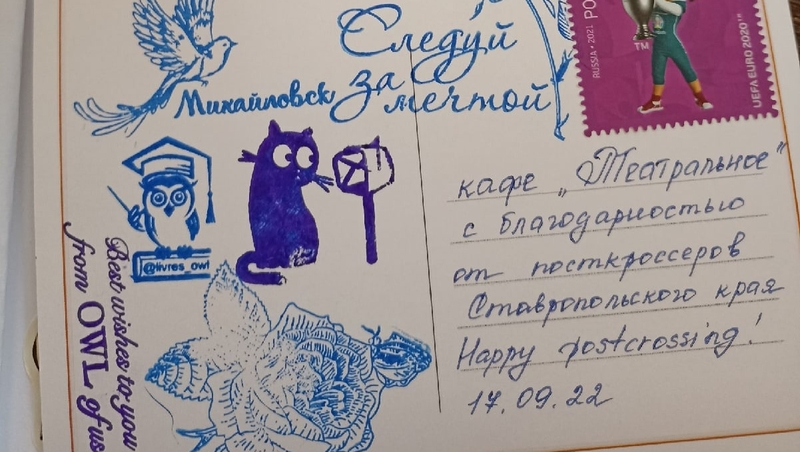 Следуй
за
мечтой
Михайловск
@livres_owl
Best wishes to you
from OWL of us
RUSSIA • 2021
РО
TM
UEFA EURO 2020
кафе „Театральное"
с благодарностью
от посткроссеров
Ставропольского края
Happy postcrossing!
17.09.22